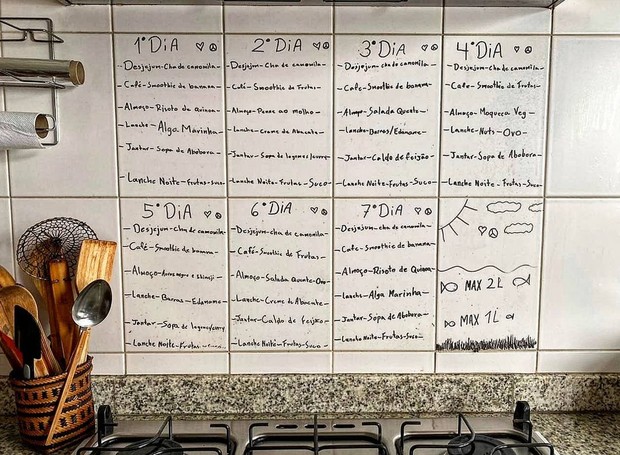 1º DIA
Desjejum-Cha de camomila
Café-Smoothie de banana
Almoço-Risoto de Quinoa
Lanche-Alga Marinha
Jantar-Sopa de Abobora
Lanche Noite-Frutas-Suco
2º DIA
Desjejum-Cha de camomila
Café-Smoothie de Frutas
Almoço-Peixe ao molho
Lanche-Creme de Abacate
Jantar-Sopa de legumes
Lanche Noite-Frutas-Suco
3º DIA
Desjejum-cha de camomila
Café-Smoothie de banana
Almoço-Salada Quente
Lanche-Barras/Edaname
Jantar-Caldo de feijão
Lanche Noite-Frutas-Suco
4º DIA
Desjejum-Cha de camomila
Café-Smoothie de Frutas
Almoço-Moqueca Veg
Lanche-Nuts-Ovo
Jantar-Sopa de Abobora
Lanche Noite-Frutas-Suco
5º DIA
Desjejum-Cha de camomila
Café-Smoothie de banana
Almoço-Arroz negro e Shimeji
Lanche-Barras-Edaname
Jantar-Sopa de legumes
Lanche Noite-Frutas
6º DIA
Desjejum-cha de camomila
Café-Smoothie de Frutas
Almoço-Salada Quente-Ovo
Lanche-Creme de Abacate
Jantar-Caldo de feijão
Lanche Noite-Frutas-Suco
7º DIA
Desjejum-cha de camomila
Café-Smoothie de banana
Almoço-Risoto de Quinoa
Lanche-Alga Marinha
Jantar-Sopa de Abobora
Lanche Noite-Frutas-Suco
MAX 2L
MAX 1L